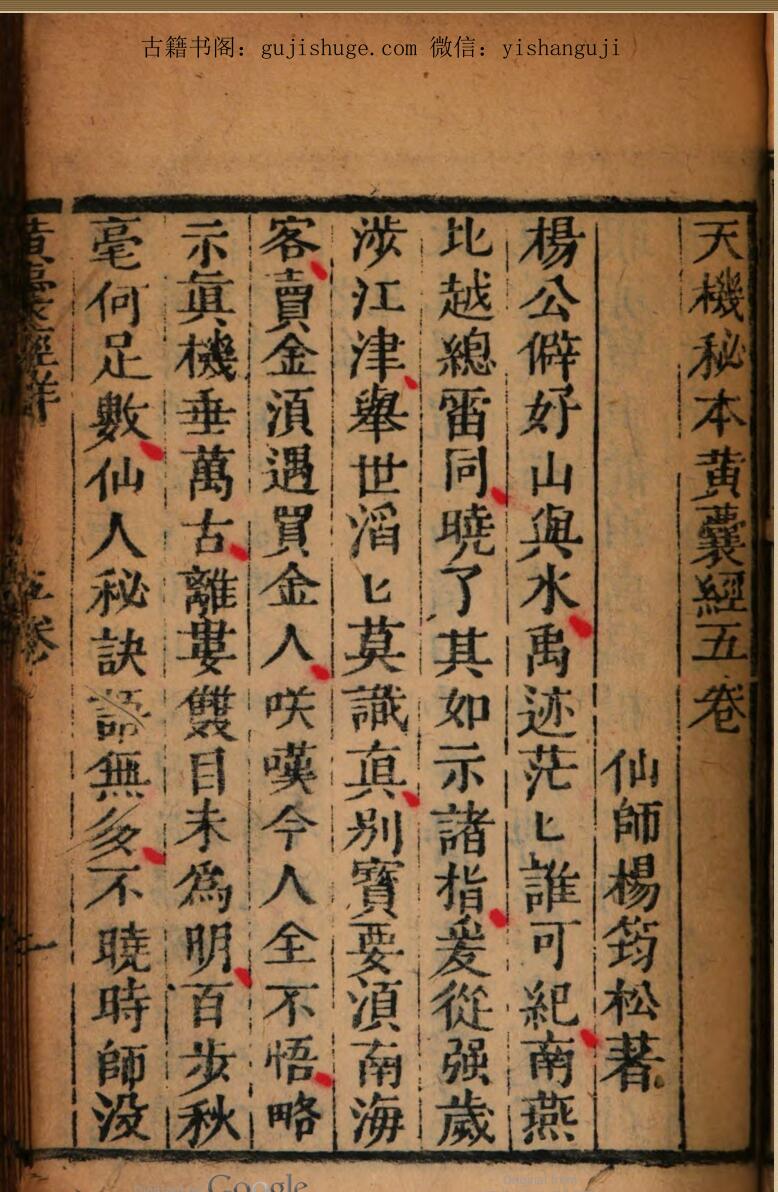 古籍书阁：gujishuge.com 微信：yishanguji
天機秘本黄囊經五卷
仙師楊筠松著
楊公僻好山與水禹迹茫匕誰可紀南燕
北越總雷同曉了其如示諸指爰從强歲
涉江津舉世滔匕莫識眞别寶要湏南海
客賣金湏遇買金人咲嘆今人全不悟略
示眞機垂萬古離婁雙目未爲明百步秋
毫何足數仙人秘訣語無多不曉時師没
黄囊經
五卷
一
Google
Original from